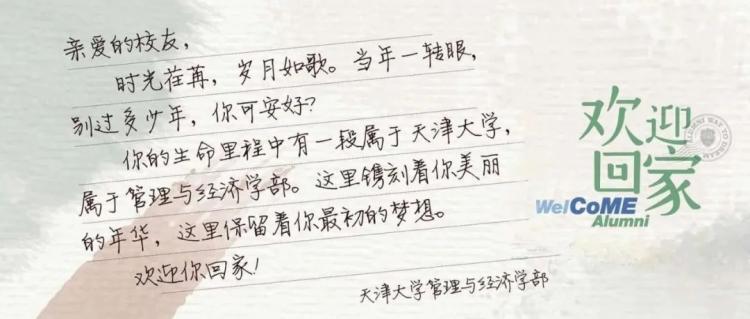 亲爱的校友，
时光荏苒，岁月如歌。当年一转眼，
别过多少年，你可安好？
你的生命里程中有一段属于天津大学，
属于管理与经济学部。这里镌刻着你美丽
的年华，这里保留着你最初的梦想。
欢迎你回家！
天津大学管理与经济学部
欢迎
回家
WelCoME
Alumni